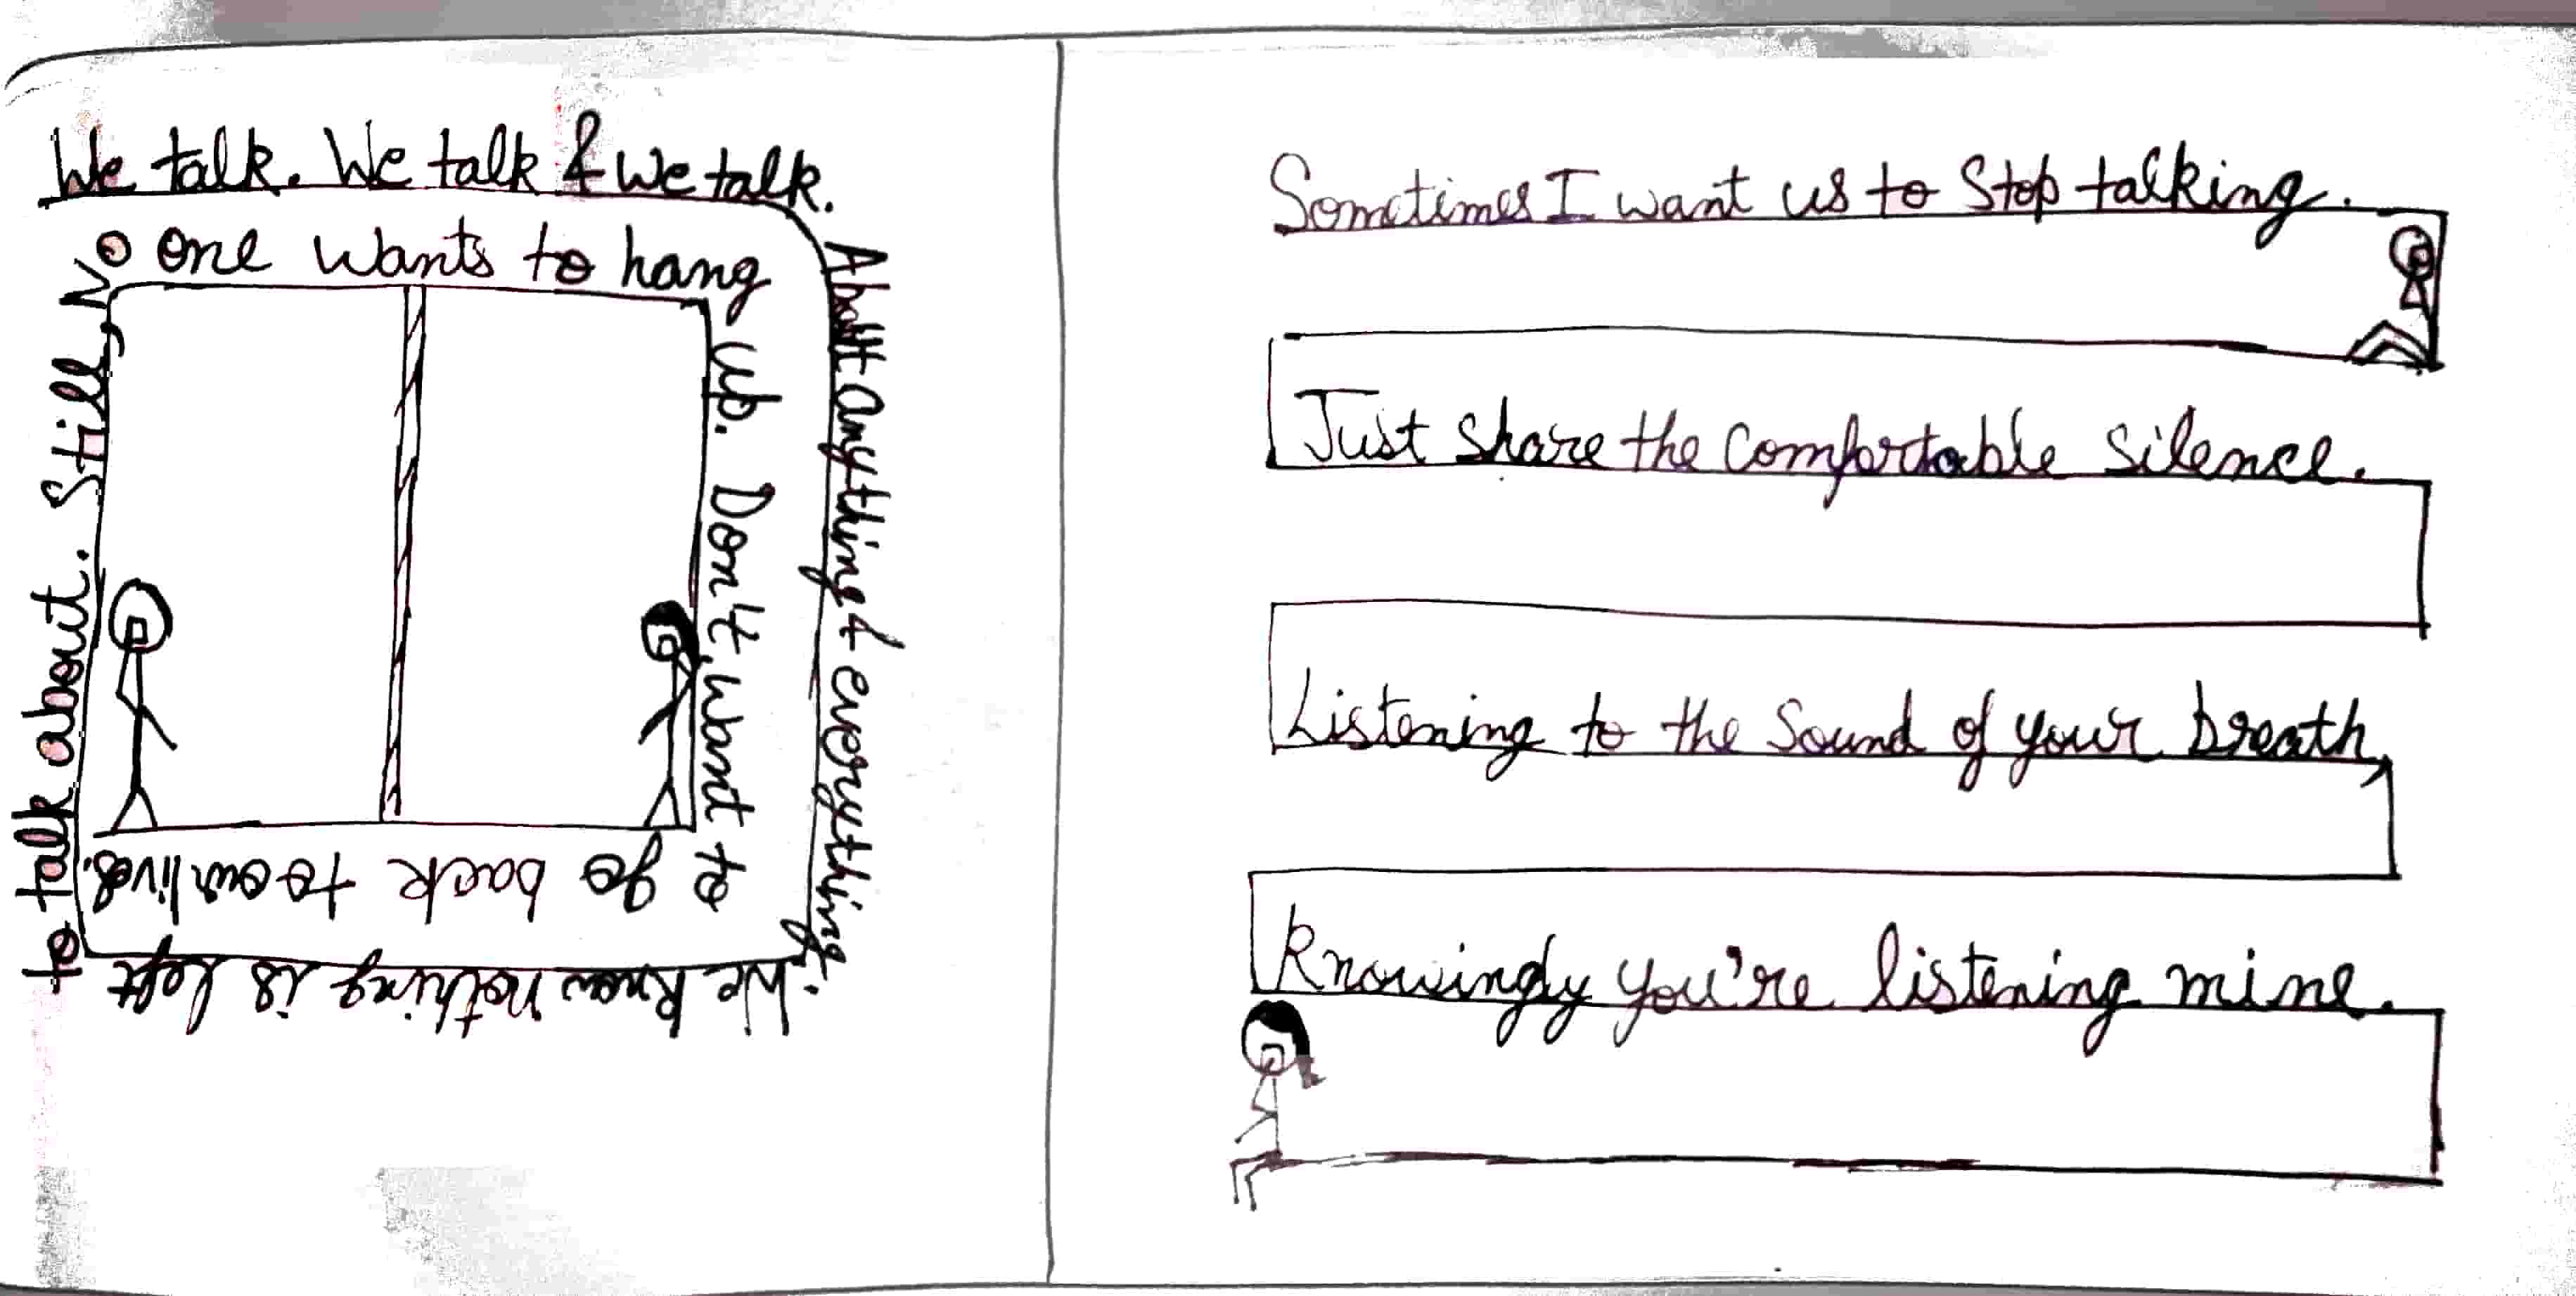 We talk. We talk & we talk.
About anything & everything.
We know nothing is left
to talk about. Still, No
one wants to hang
up. Don't want to
go back to our lives.
Sometimes I want us to stop talking.
Just share the comfortable silence.
Listening to the sound of your breath,
knowingly you're listening mine.